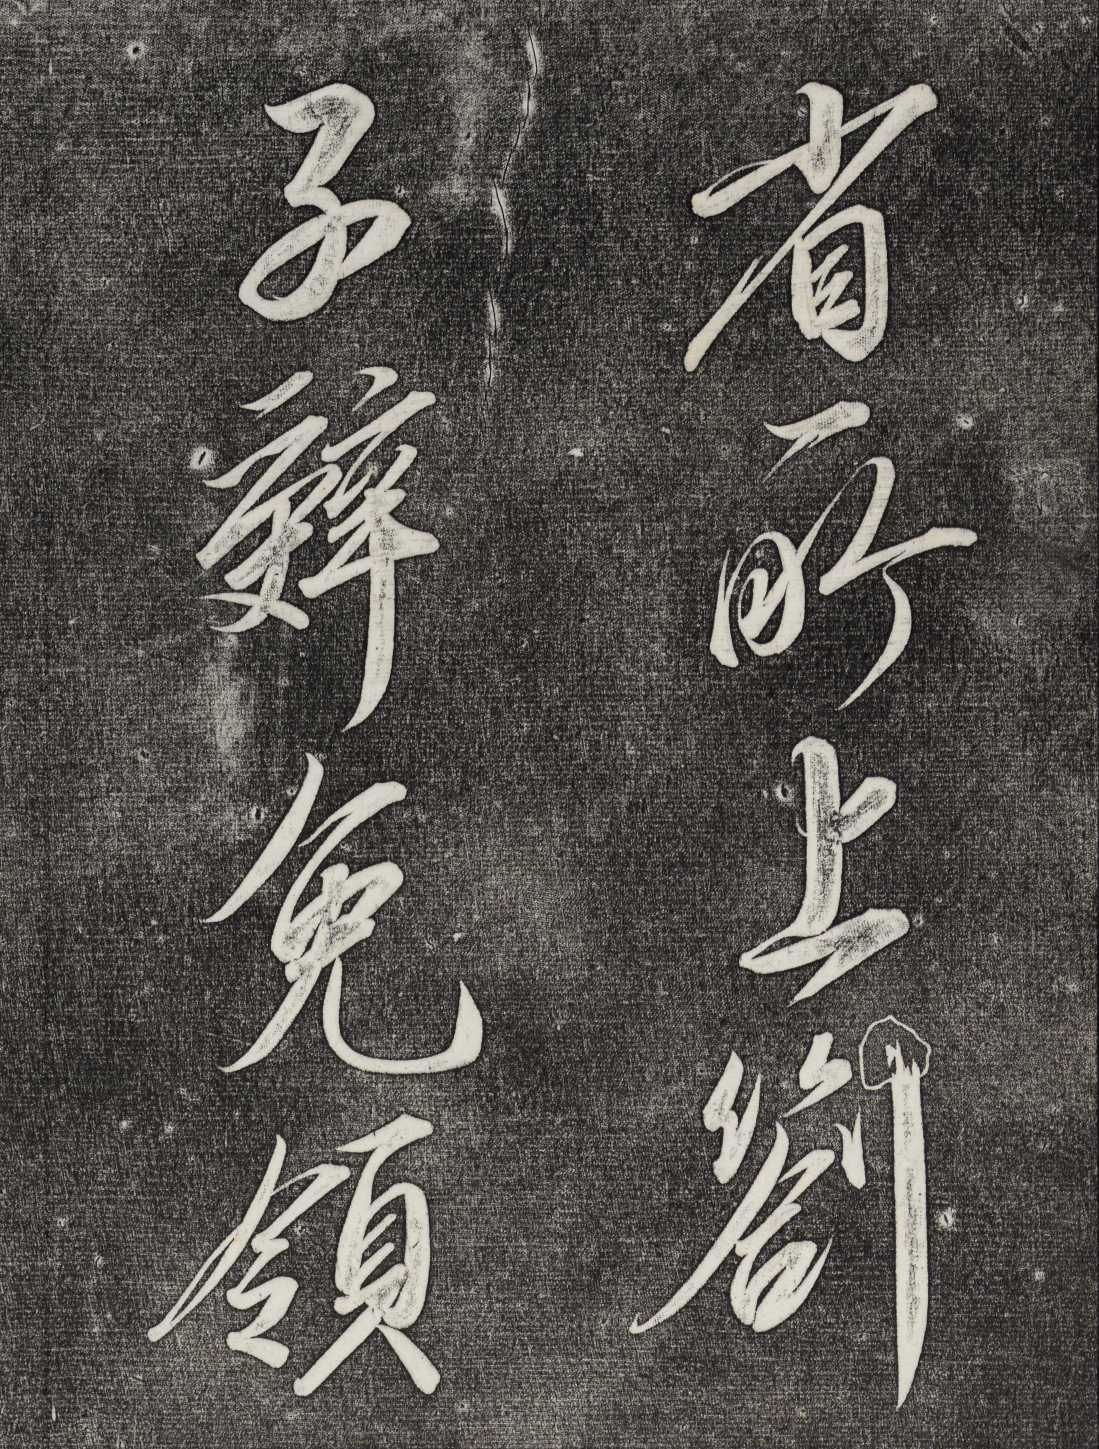 省所上劄
子辭免領